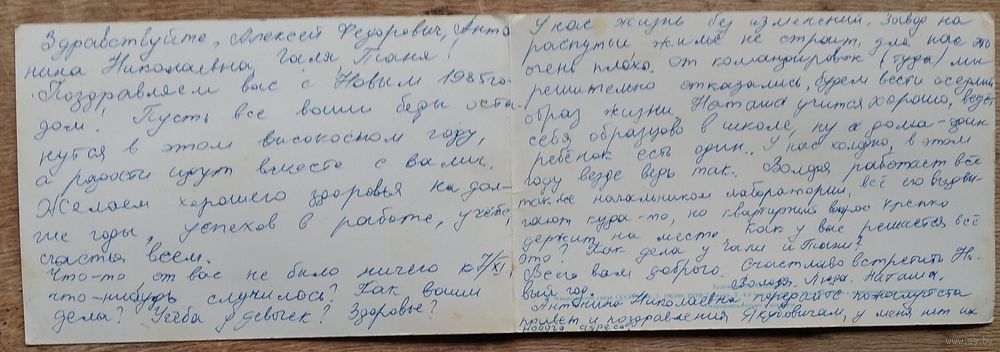 Здравствуйте, Алексей Федорович, Анто
нина Николаевна Галя, Таня!
Поздравляем вас с Новым 1985 го-
дом! Пусть все ваши беды оста
нутся в этом високосном году,
а радости идут вместе с вами.
Желаем хорошего здоровья на дол-
гие годы, успехов в работе, учебе,
счастья всем.
Что-то от вас не было ничего к 7/XI
что-нибудь случилось? Как ваши
дела? Учеба у девочек? Здоровье?
У нас жизнь без изменений. Завод на
распутьи жилье не строит, для нас это
очень плохо. От командировок (туда) мы
решительно отказались, будем вести оседлый
образ жизни. Наташа учится хорошо, ведет
себя образцово в школе, ну а дома - один
ребенок есть один. У нас холодно, в этом
году везде ведь так. Володя работает все
так же начальником лаборатории, всё его выдви-
гают куда-то, но квартирный вопрос крепко
держит на месте. Как у вас решается всё
это? Как дела у Гали и Тани?
Всего вам доброго. Счастливо встретить Но-
вый год. Володя Люда Наташа.
Антонина Николаевна, передайте пожалуйста
привет и поздравления Якубовичам, у меня нет их
нового адреса.
www.ay.by